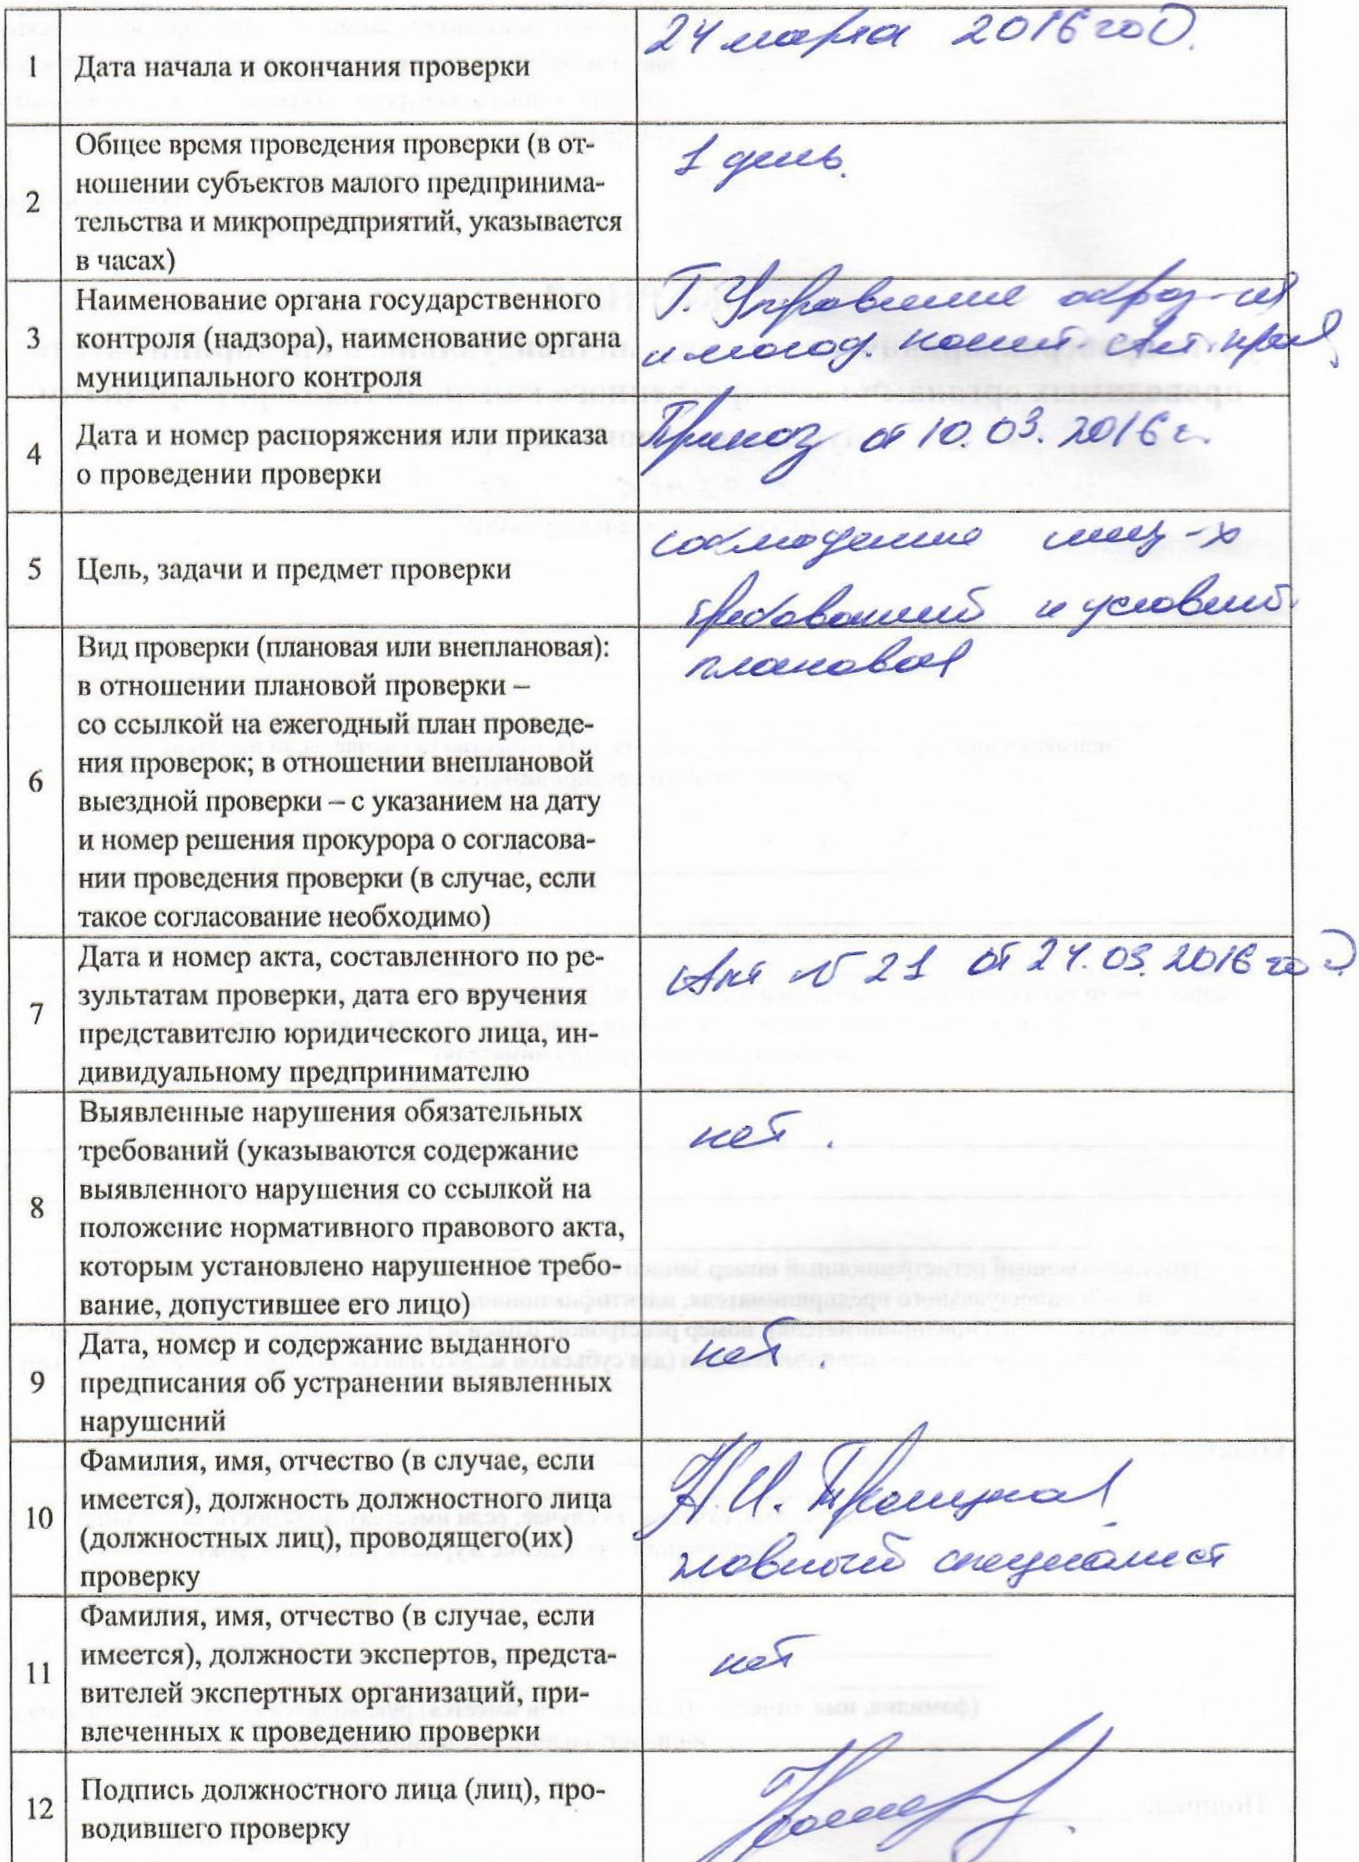 1
Дата начала и окончания проверки
24 марта 2016 год.
2
Общее время проведения проверки (в от-
ношении субъектов малого предпринима-
тельства и микропредприятий, указывается
в часах)
1 день.
3
Наименование органа государственного
контроля (надзора), наименование органа
муниципального контроля
Управление образ-ия
и молод.
4
Дата и номер распоряжения или приказа
о проведении проверки
Приказ от 10.03.2016 г.
5
Цель, задачи и предмет проверки
соблюдение лиц-х
требований и условий.
6
Вид проверки (плановая или внеплановая):
в отношении плановой проверки –
со ссылкой на ежегодный план проведе-
ния проверок; в отношении внеплановой
выездной проверки – с указанием на дату
и номер решения прокурора о согласова-
нии проведения проверки (в случае, если
такое согласование необходимо)
плановая
7
Дата и номер акта, составленного по ре-
зультатам проверки, дата его вручения
представителю юридического лица, ин-
дивидуальному предпринимателю
Акт № 21 от 24.03.2016 год
8
Выявленные нарушения обязательных
требований (указываются содержание
выявленного нарушения со ссылкой на
положение нормативного правового акта,
которым установлено нарушенное требо-
вание, допустившее его лицо)
нет.
9
Дата, номер и содержание выданного
предписания об устранении выявленных
нарушений
нет.
10
Фамилия, имя, отчество (в случае, если
имеется), должность должностного лица
(должностных лиц), проводящего(их)
проверку
Н.И.
главный специалист
11
Фамилия, имя, отчество (в случае, если
имеется), должности экспертов, предста-
вителей экспертных организаций, при-
влеченных к проведению проверки
нет
12
Подпись должностного лица (лиц), про-
водившего проверку